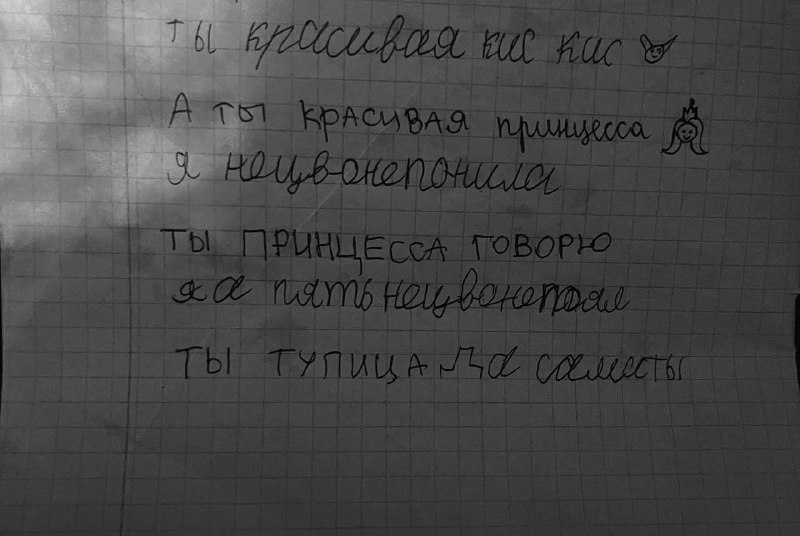 ты красивая кис кис
А ты красивая принцесса
я нецвонепонила
ты принцесса говорю
я а пять нецвонепоял
ты тупица да саматы